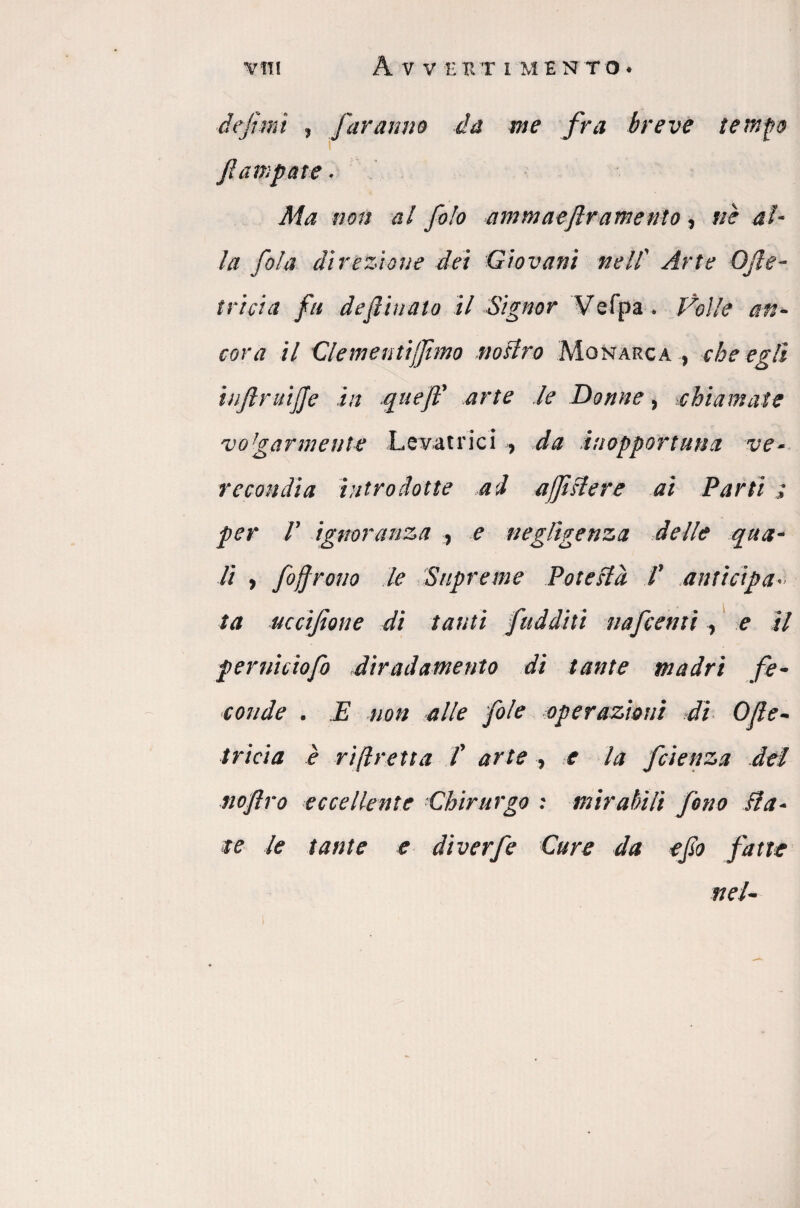 VIII AVVERTIMENTO.
deſimi , ſaranno da me fra breve tempo
ſtampate.
Ma non al ſolo ammaeſtramento, nè al-
la ſola direzione dei Giovani nell' Arte Oſte-
tricia fu deſtinato il Signor Veſpa. Volle an-
cora il Clementiſſimo noſtro MONARCA , che egli
inſtruiſſe in queſt' arte le Donne, chiamate
volgarmente Levatrici , da inopportuna ve-
recondia introdotte ad aſſiſtere ai Parti ;
per l' ignoranza , e negligenza delle qua-
li , ſoffrono le Supreme Poteſtà l' anticipa-
ta ucciſione di tanti ſudditi naſcenti , e il
pernicioſo diradamento di tante madri fe-
conde . E non alle ſole operazioni di Oſte-
tricia è riſtretta l' arte , e la ſcienza del
noſtro eccellente Chirurgo : mirabili ſono ſta-
te le tante e diverſe Cure da eſſo fatte
nel-